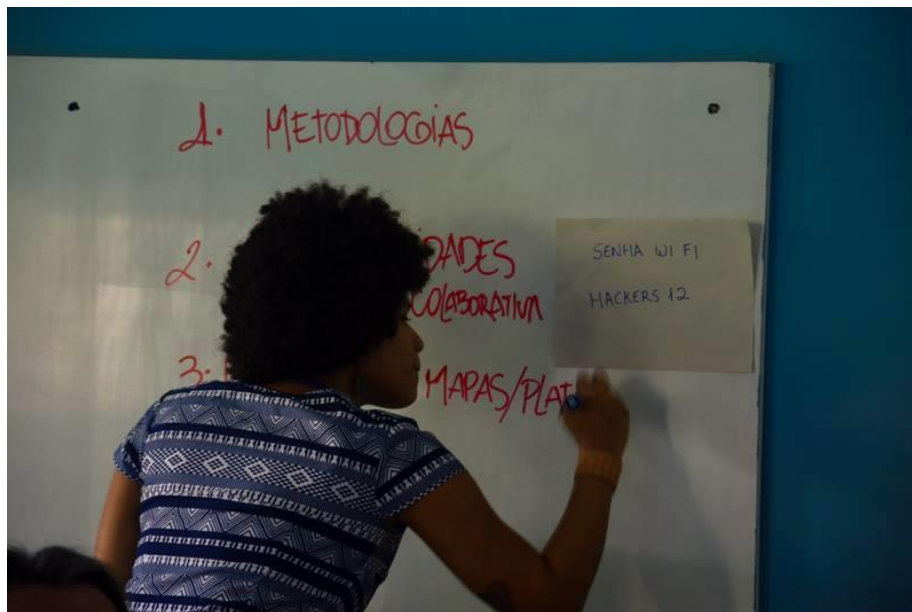 1. METODOLOGIAS
2.
COLABORATIVA
3.
MAPAS/
SENHA WI FI
HACKERS 12